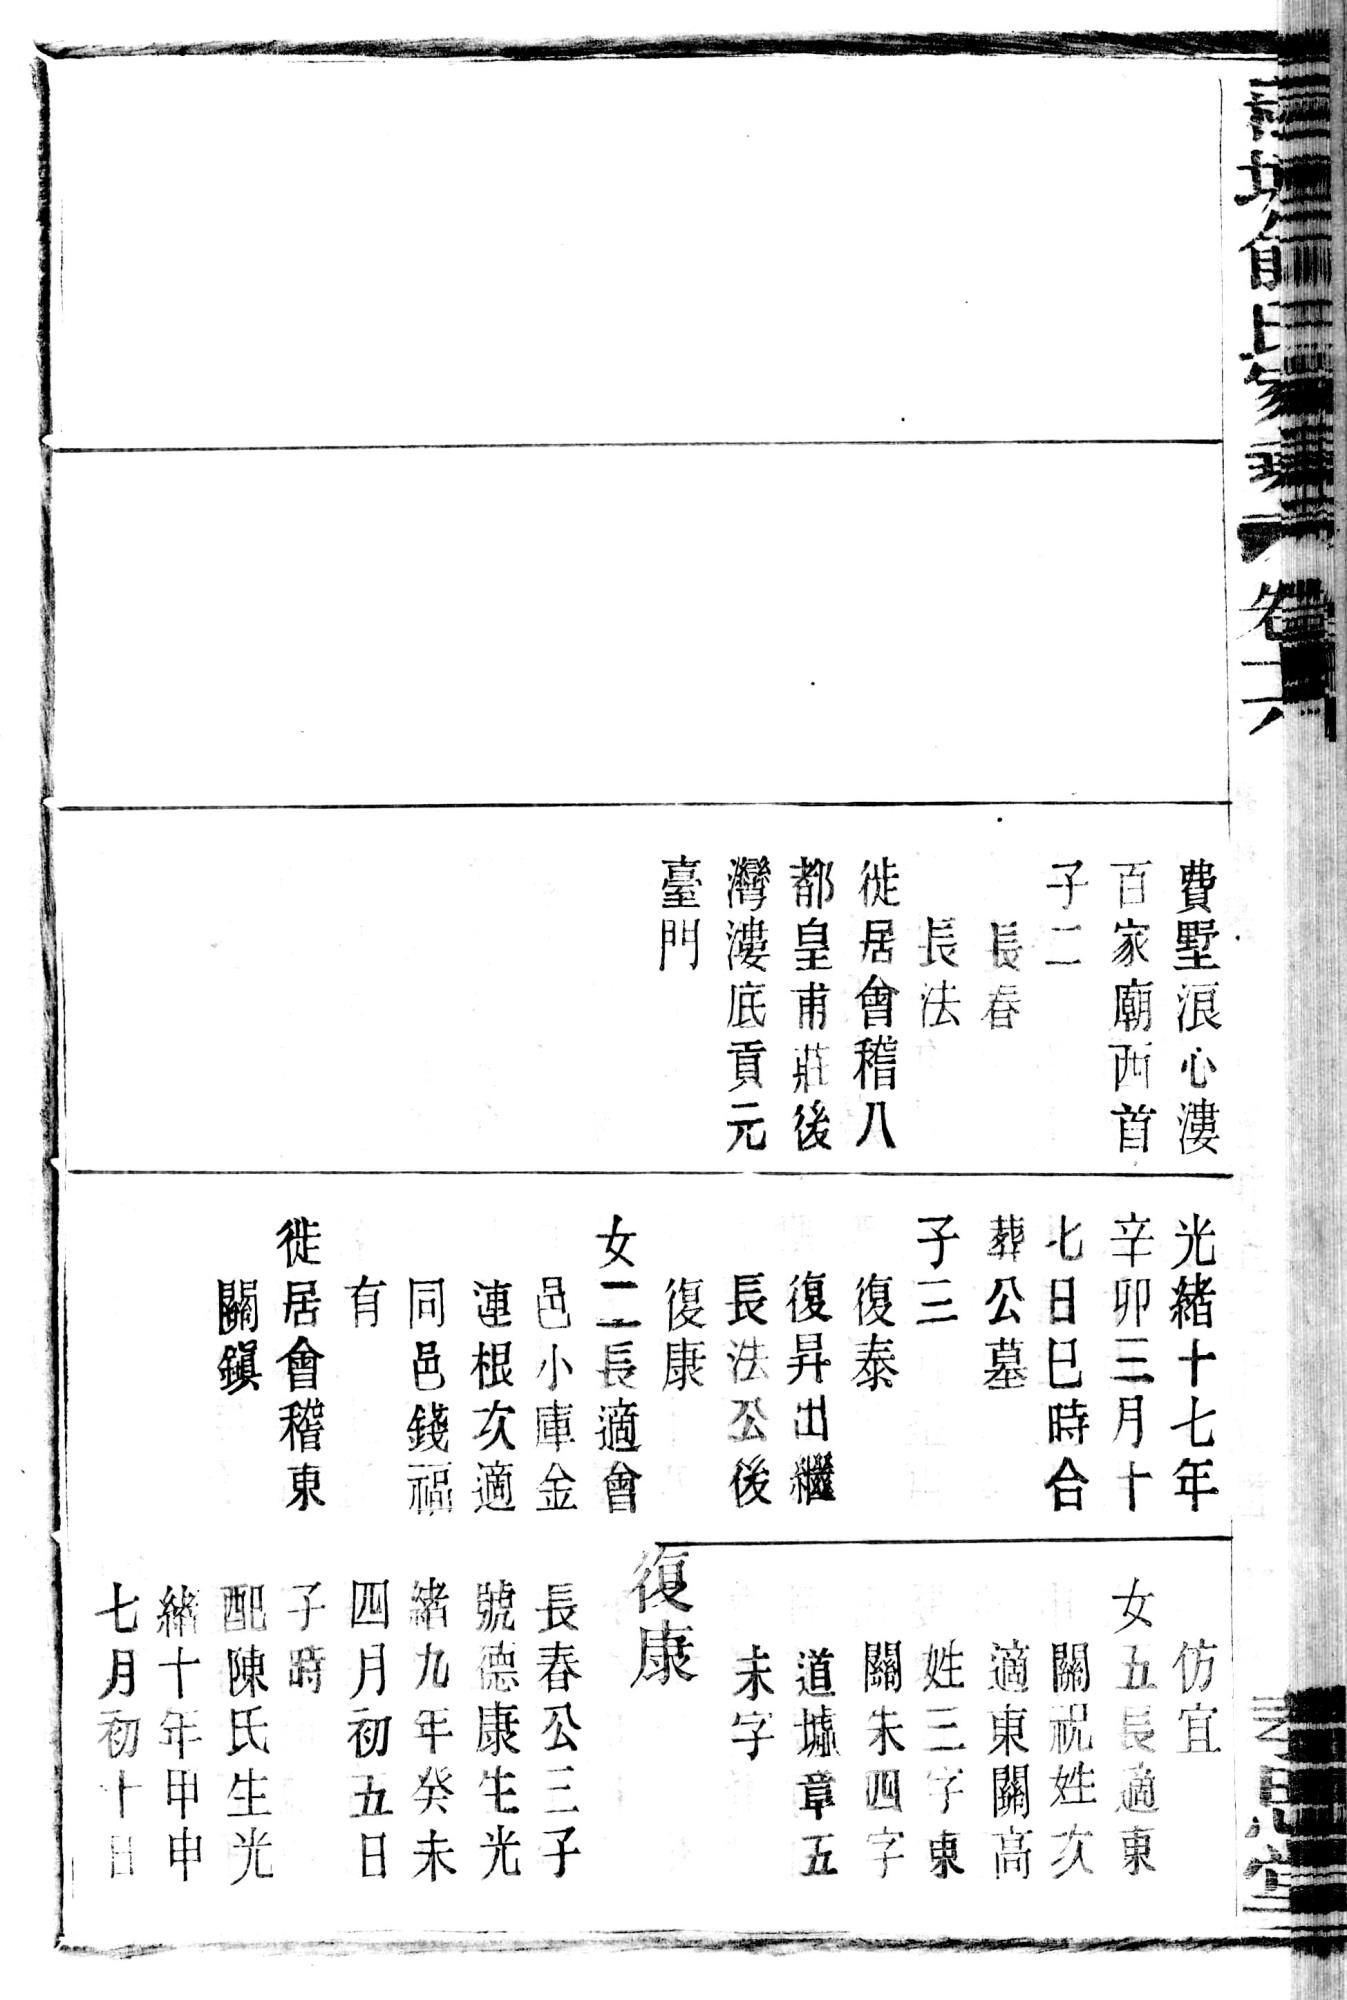 俞氏家譜
卷六
孝思堂
費墅浪心漊
百家廟西首
子二
長春
長法
徙居會稽八
都皇甫莊後
灣漊底貢元
臺門
光緒十七年
辛卯三月十
七日巳時合
葬公墓
子三
復泰
復昇出繼
長法公後
復康
女二長適會
邑小庫金
連根次適
同邑錢福
有
徙居會稽東
關鎭
仿宜
女五長適東
關祝姓次
適東關高
姓三字東
關朱四字
道墟章五
未字
復康
長春公三子
號德康生光
緒九年癸未
四月初五日
子時
配陳氏生光
緒十年甲申
七月初十日